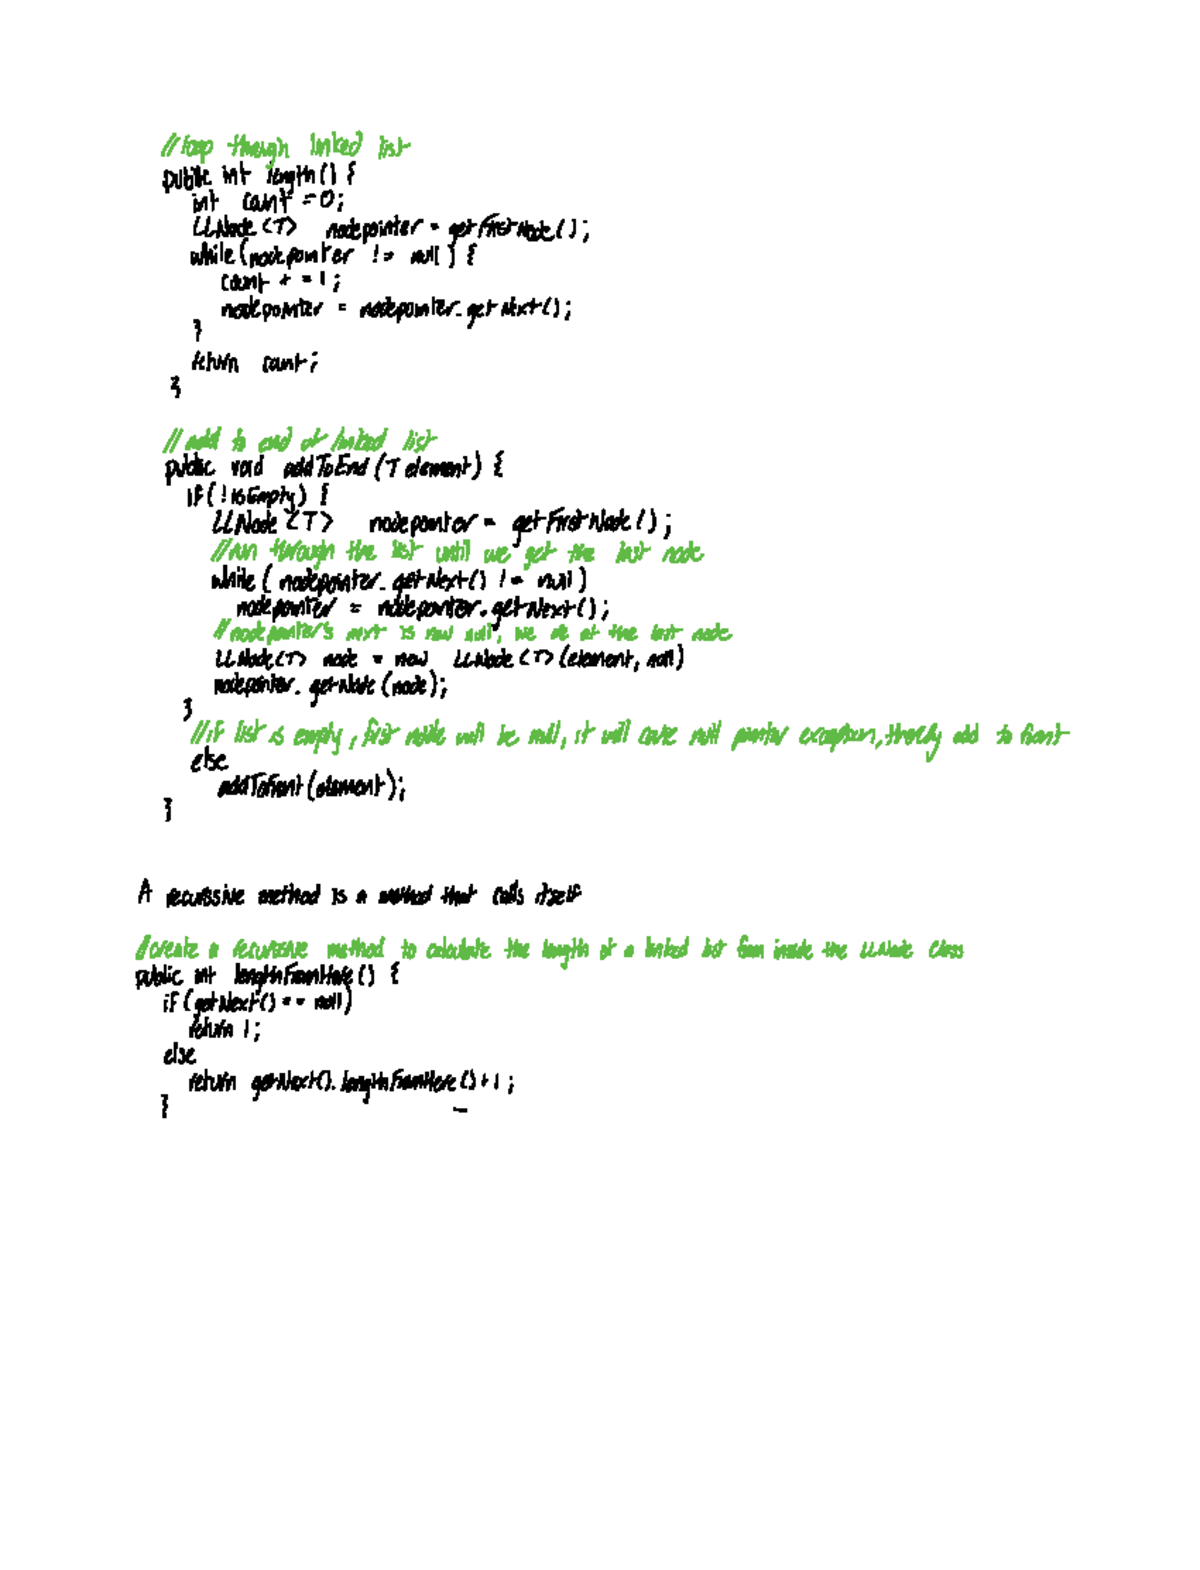 //loop through linked list
public int length() {
int count = 0;
LLNode<T> nodepointer = getFirstNode();
while(nodepointer != null) {
count += 1;
nodepointer = nodepointer.getNext();
}
return count;
}
//add to end of linked list
public void addToEnd(T element) {
if(!isEmpty) {
LLNode<T> nodepointer = getFirstNode();
//run through the list until we get the last node
while( nodepointer.getNext() != null)
nodepointer = nodepointer.getNext();
//nodepointer's next is now null, we at at the last node
LLNode<T> node = new LLNode<T>(element, null)
nodepointer. (node);
}
//if list is empty, first node will be null, it will cause null pointer exception, thereby add to front
else
addToFront(element);
}
A recurssive method is a method that calls itself
//create a recursive method to calculate the length of a linked list from inside the LLNode class
public int lengthFromHere() {
if(getNext() == null)
return 1;
else
return getNext().lengthFromHere()+1;
}